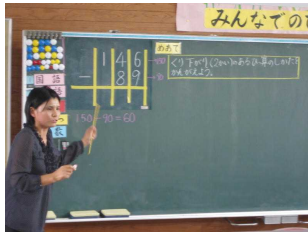 みんなでの
めあて
146
- 89
くり下がり(2かい)のあるひき算のしかたを
かんがえよう。
国語
150-90=60